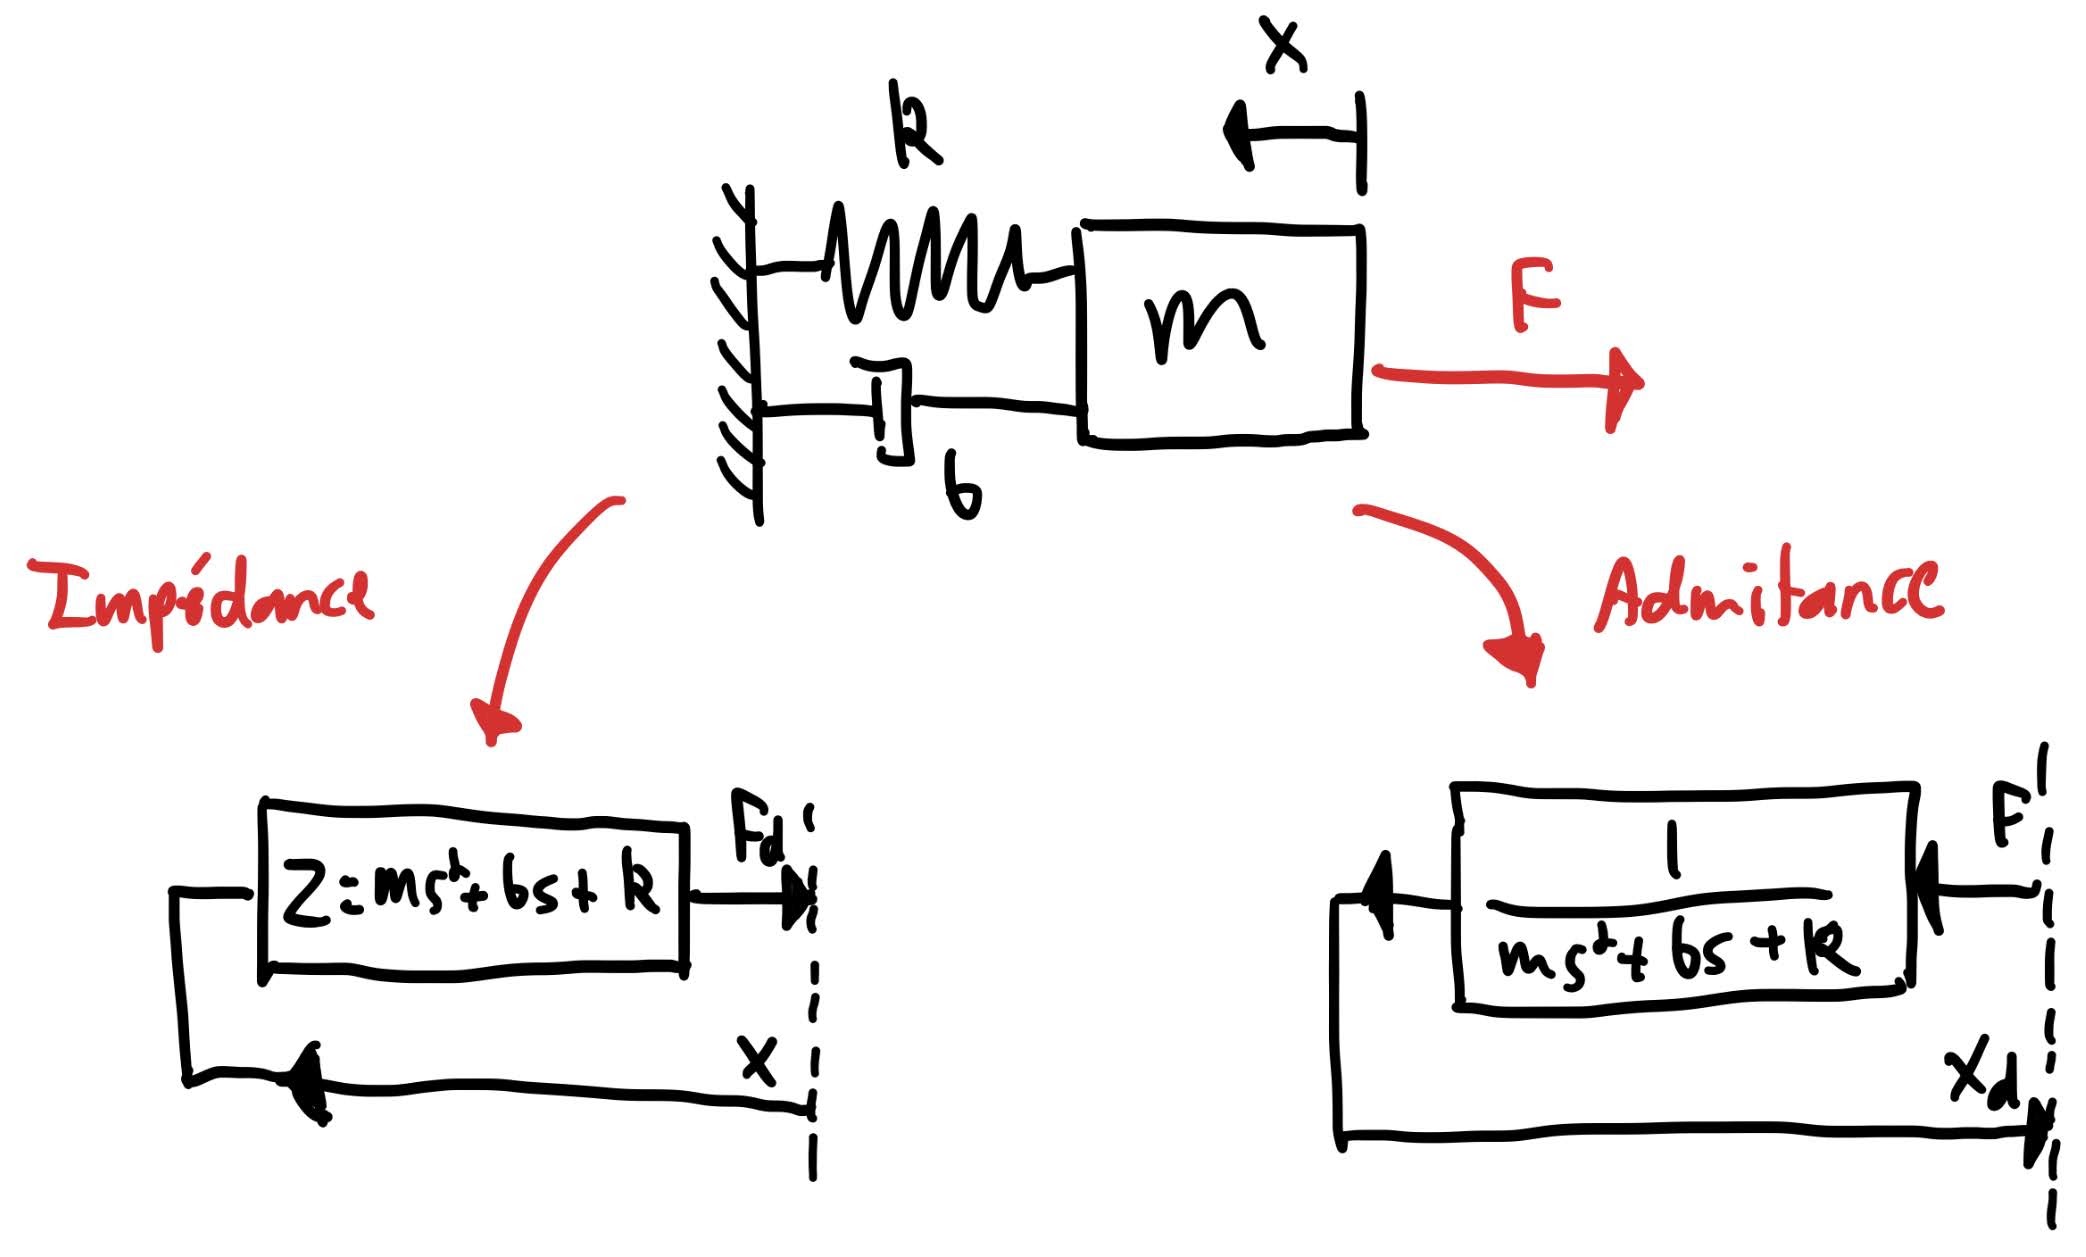 x
k
m
F
b
Impédance
Admitance
Fd
Z=ms²+bs+k
x
F
1
ms²+bs+k
xd